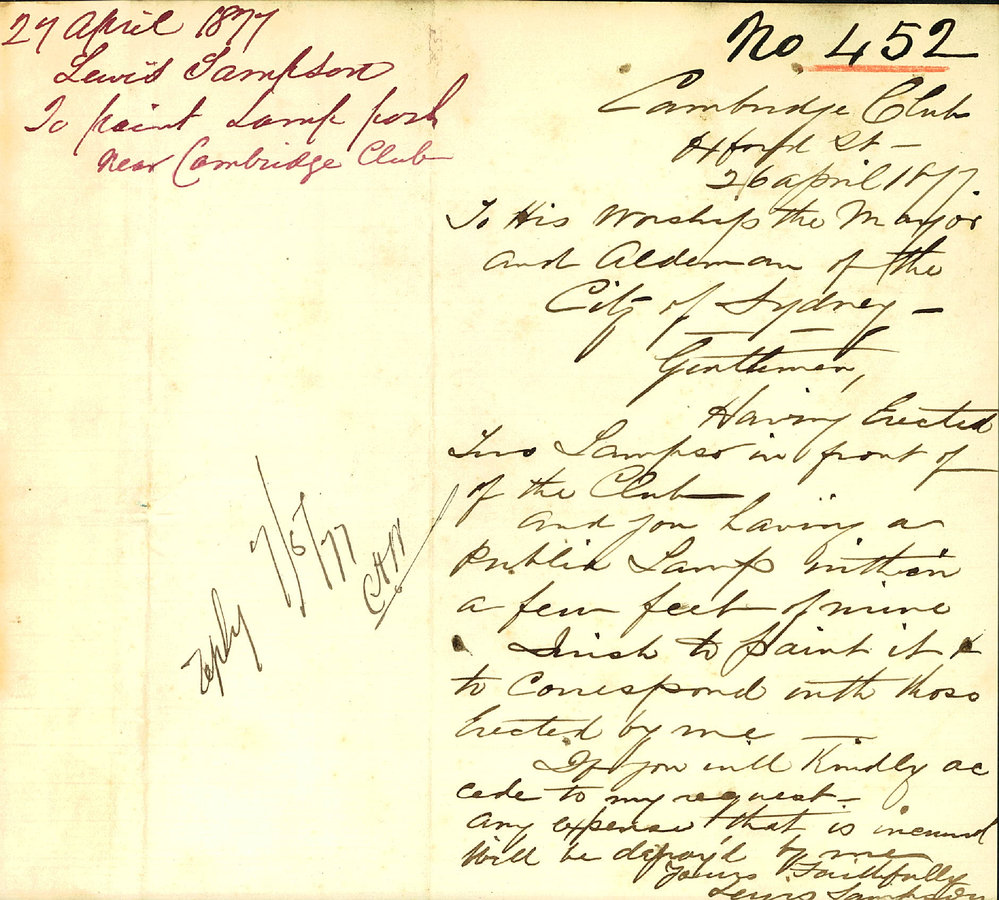 27 April 1877
Lewis Sampson
To paint Lamp post
near Cambridge Club
reply 7/5/77
No 452
Cambridge Club
Oxford St -
26 april 1877.
To His Worship the Mayor
and Aldeman of the
City of Sydney -
Gentlemen,
Having Erected
Two Lamps in front of
of the Club
and you having a
Public Lamp within
a few feet of mine
I wish to paint it
to Correspond with those
Erected by me
If you will Kindly ac
cede to my request -
any expense that is incurred
Will be defray'd by me
Yours Faithfully
Lewis Sampson